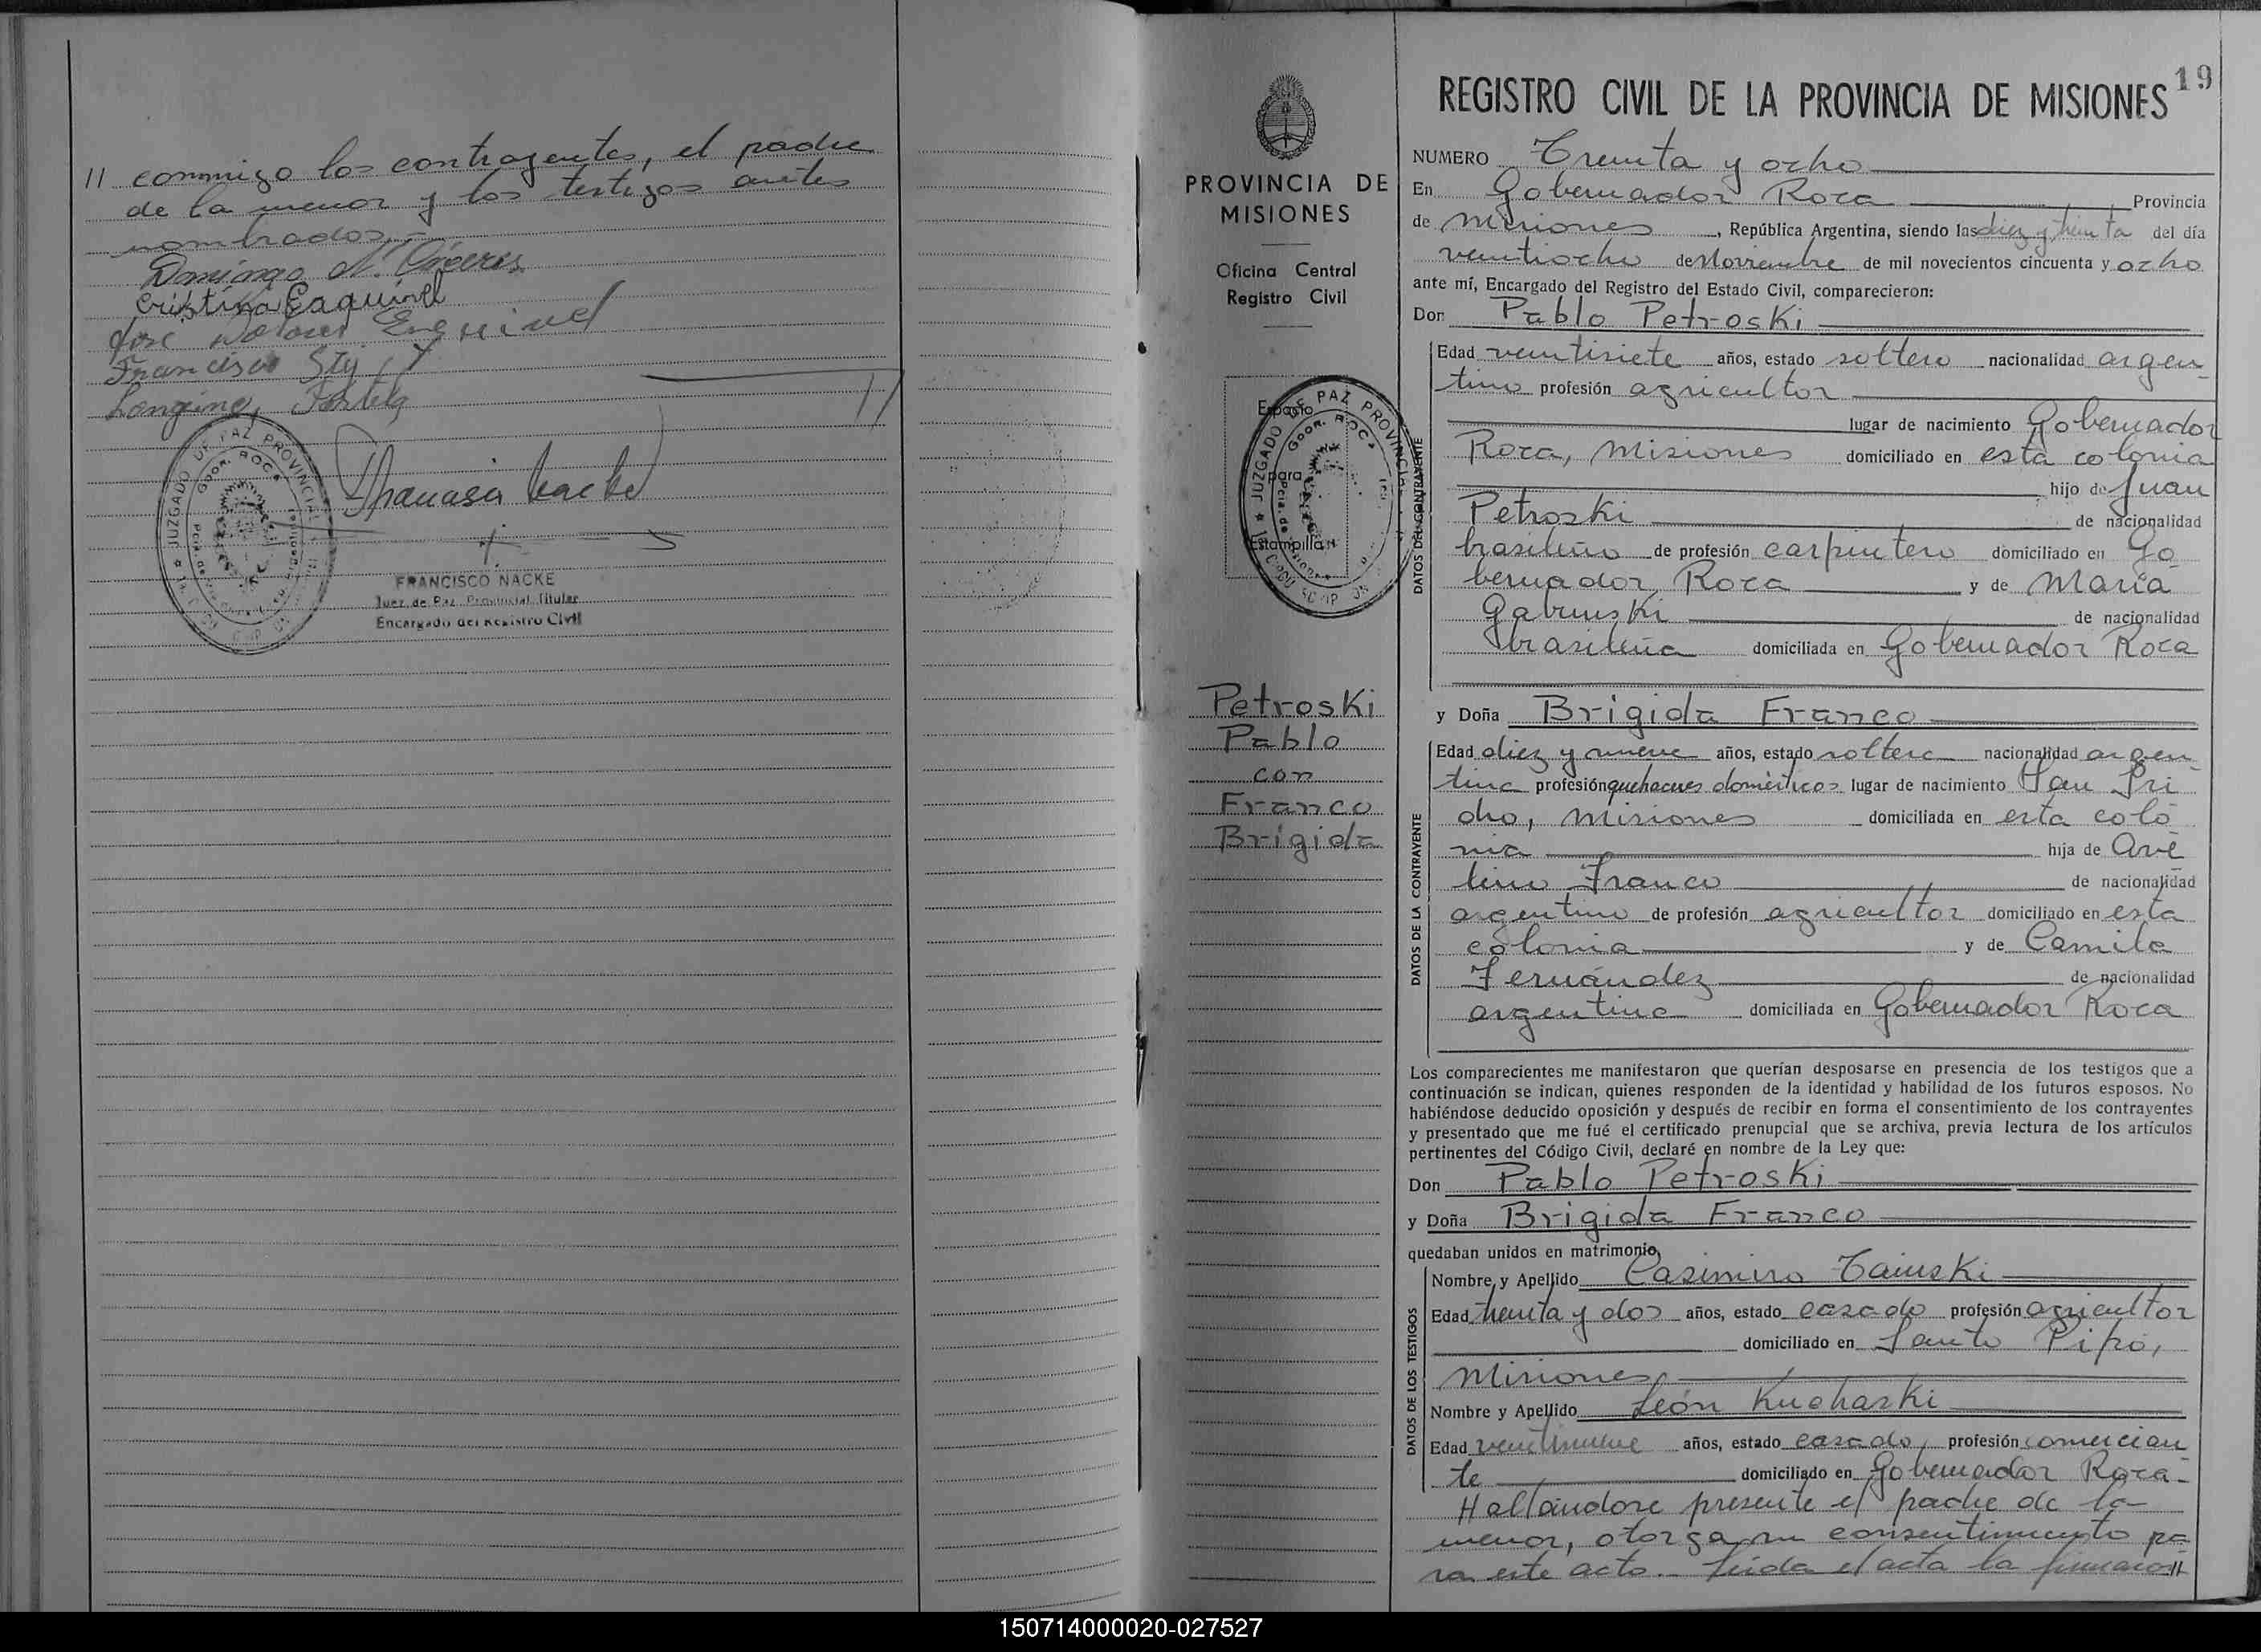 // conmigo los contrayentes, el padre
de la menor y los testigos antes
nombrados.-
Domingo N.
Cristina Esquivel
Jose Dolores Esquivel
Francisco
Longino Portela
//
JUZGADO DE PAZ PROVINCIAL
GDOR. ROCA
Pcia. de
FRANCISCO NACKE
Juez de Paz Provincial Titular
Encargado del Registro Civil
PROVINCIA DE
MISIONES
Oficina Central
Registro Civil
Espacio
para
Estampilla
JUZGADO DE PAZ PROVINCIAL
GDOR. ROCA
Pcia. de
Petroski
Pablo
con
Franco
Brígida
19
REGISTRO CIVIL DE LA PROVINCIA DE MISIONES
NUMERO Treinta y ocho
En Gobernador Roca Provincia
de Misiones, República Argentina, siendo las diez y treinta del día
veintiocho de Noviembre de mil novecientos cincuenta y ocho
ante mí, Encargado del Registro del Estado Civil, comparecieron:
Don Pablo Petroski
DATOS DEL CONTRAYENTE
Edad veintisiete años, estado soltero nacionalidad argen
tino profesión agricultor
lugar de nacimiento Gobernador
Roca, Misiones domiciliado en esta colonia
hijo de Juan
Petroski de nacionalidad
brasileño de profesión carpintero domiciliado en Go
bernador Roca y de María
Gabruski de nacionalidad
brasileña domiciliada en Gobernador Roca
y Doña Brígida Franco
DATOS DE LA CONTRAYENTE
Edad diez y nueve años, estado soltera nacionalidad argen
tina profesión quehaceres domésticos lugar de nacimiento San Isi
dro, Misiones domiciliada en esta colo
nia hija de Ave
lino Franco de nacionalidad
argentino de profesión agricultor domiciliado en esta
colonia y de Camila
Fernández de nacionalidad
argentina domiciliada en Gobernador Roca
Los comparecientes me manifestaron que querían desposarse en presencia de los testigos que a
continuación se indican, quienes responden de la identidad y habilidad de los futuros esposos. No
habiéndose deducido oposición y después de recibir en forma el consentimiento de los contrayentes
y presentado que me fué el certificado prenupcial que se archiva, previa lectura de los artículos
pertinentes del Código Civil, declaré en nombre de la Ley que:
Don Pablo Petroski
y Doña Brígida Franco
quedaban unidos en matrimonio,
DATOS DE LOS TESTIGOS
Nombre y Apellido Casimiro Tainski
Edad treinta y dos años, estado casado profesión agricultor
domiciliado en Santo Pipó,
Misiones
Nombre y Apellido León Kucharki
Edad veintinueve años, estado casado, profesión comercian
te domiciliado en Gobernador Roca.-
Hallándose presente el padre de la
menor, otorga su consentimiento pa
ra este acto.- Leída el acta la firmaron//
150714000020-027527